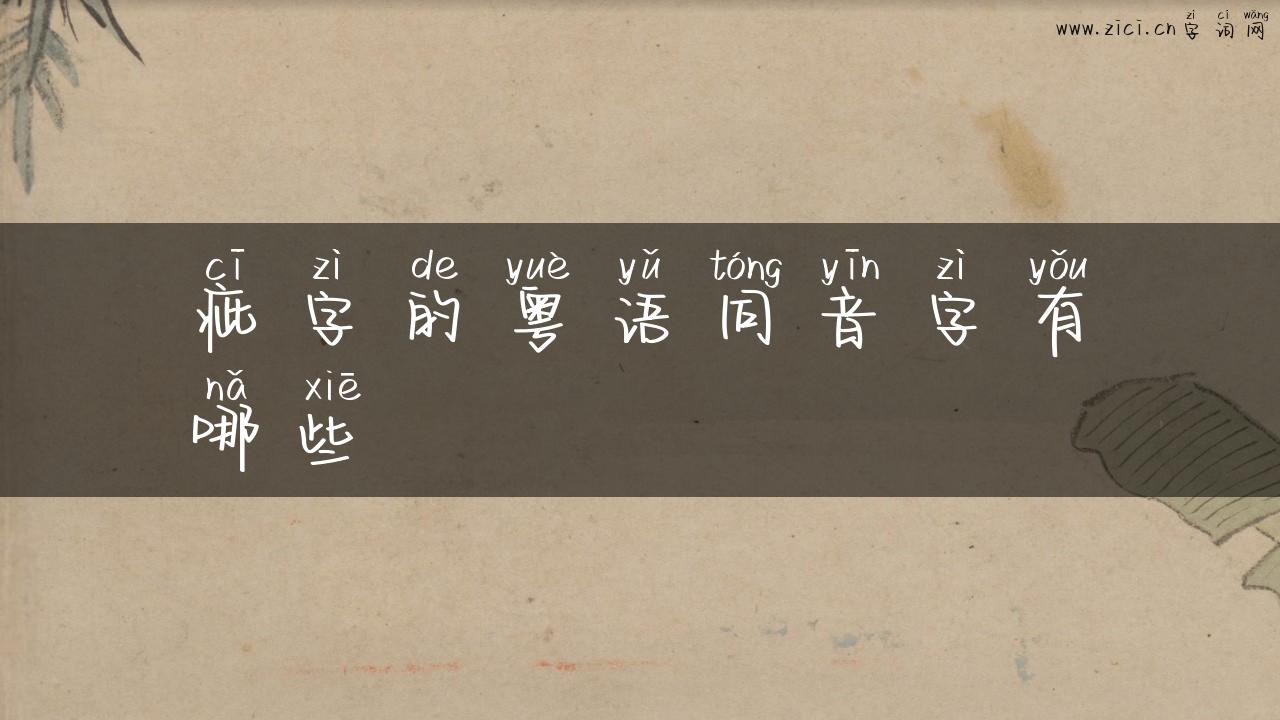 zì cí wǎng
www.zici.cn 字词网
cī zì de yuè yǔ tóng yīn zì yǒu
疵字的粤语同音字有
nǎ xiē
哪些